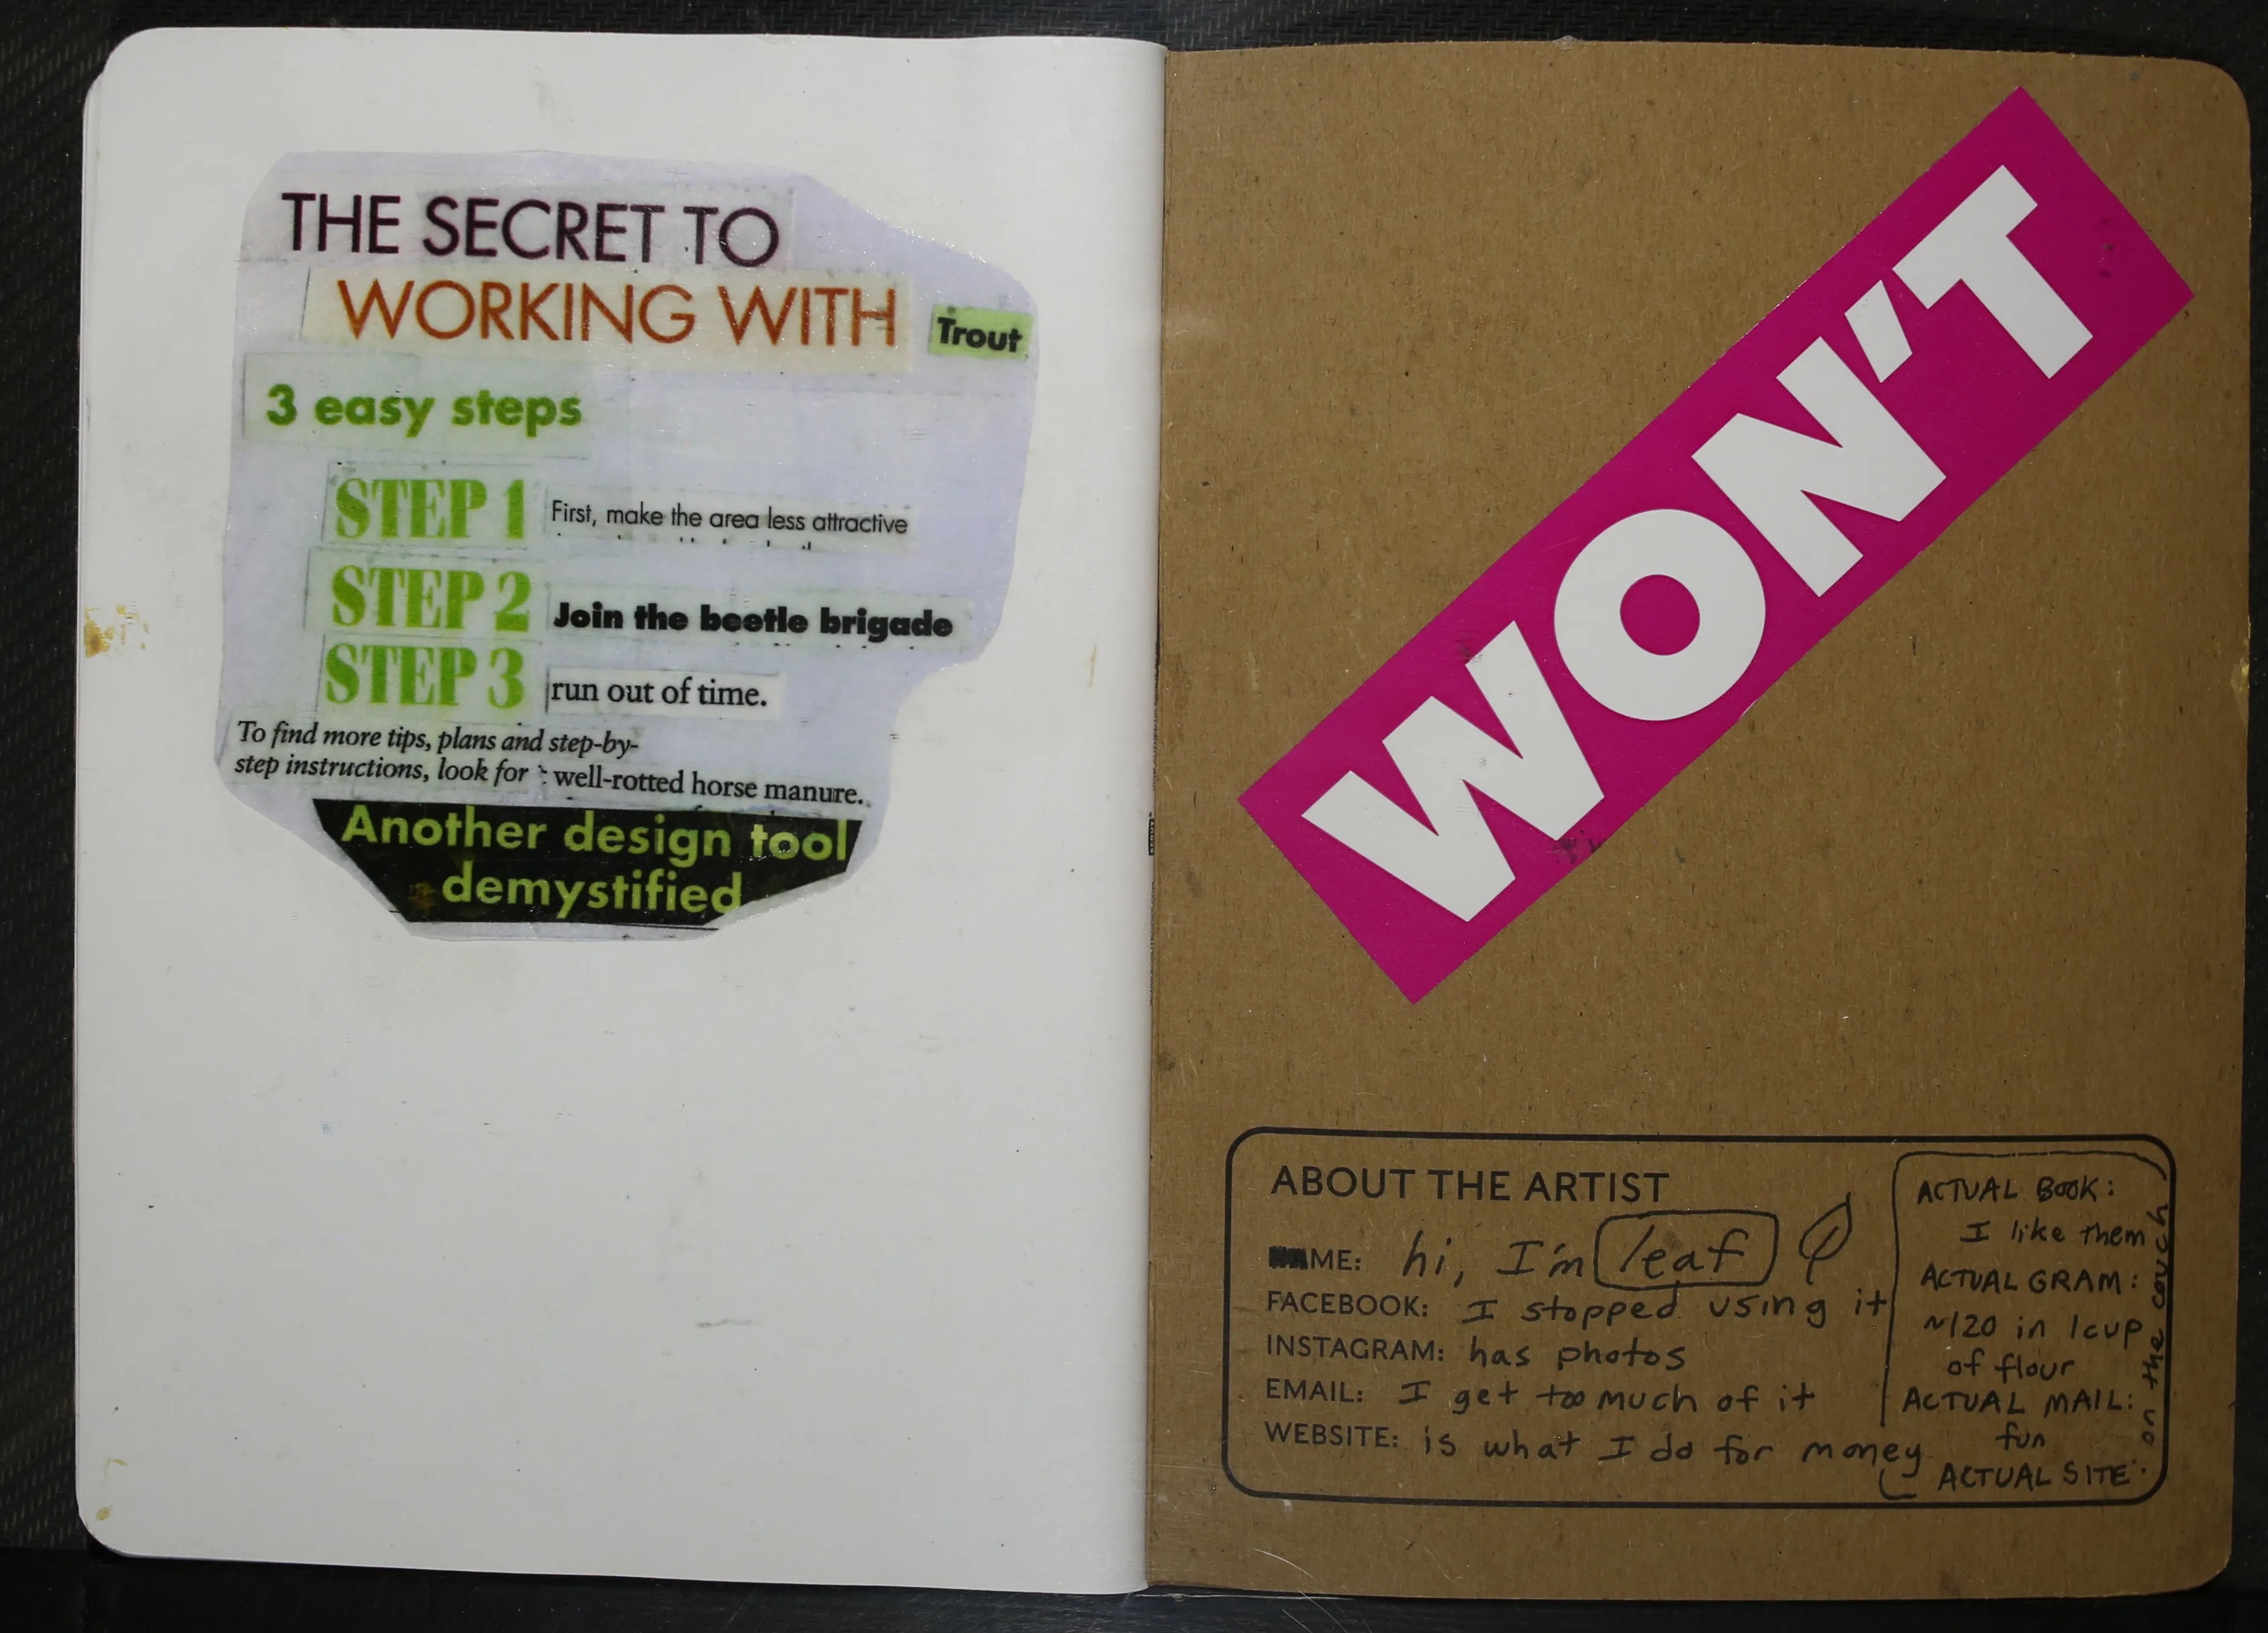 THE SECRET TO
WORKING WITH Trout
3 easy steps
STEP 1 First, make the area less attractive
STEP 2 Join the beetle brigade
STEP 3 run out of time.
To find more tips, plans and step-by-
step instructions, look for well-rotted horse manure.
Another design tool
demystified
WON'T
ABOUT THE ARTIST
ME: hi, I'm leaf
FACEBOOK: I stopped using it
INSTAGRAM: has photos
EMAIL: I get too much of it
WEBSITE: is what I do for money
ACTUAL BOOK:
I like them
ACTUAL GRAM:
~120 in 1 cup
of flour
ACTUAL MAIL:
fun
ACTUAL SITE:
on the couch